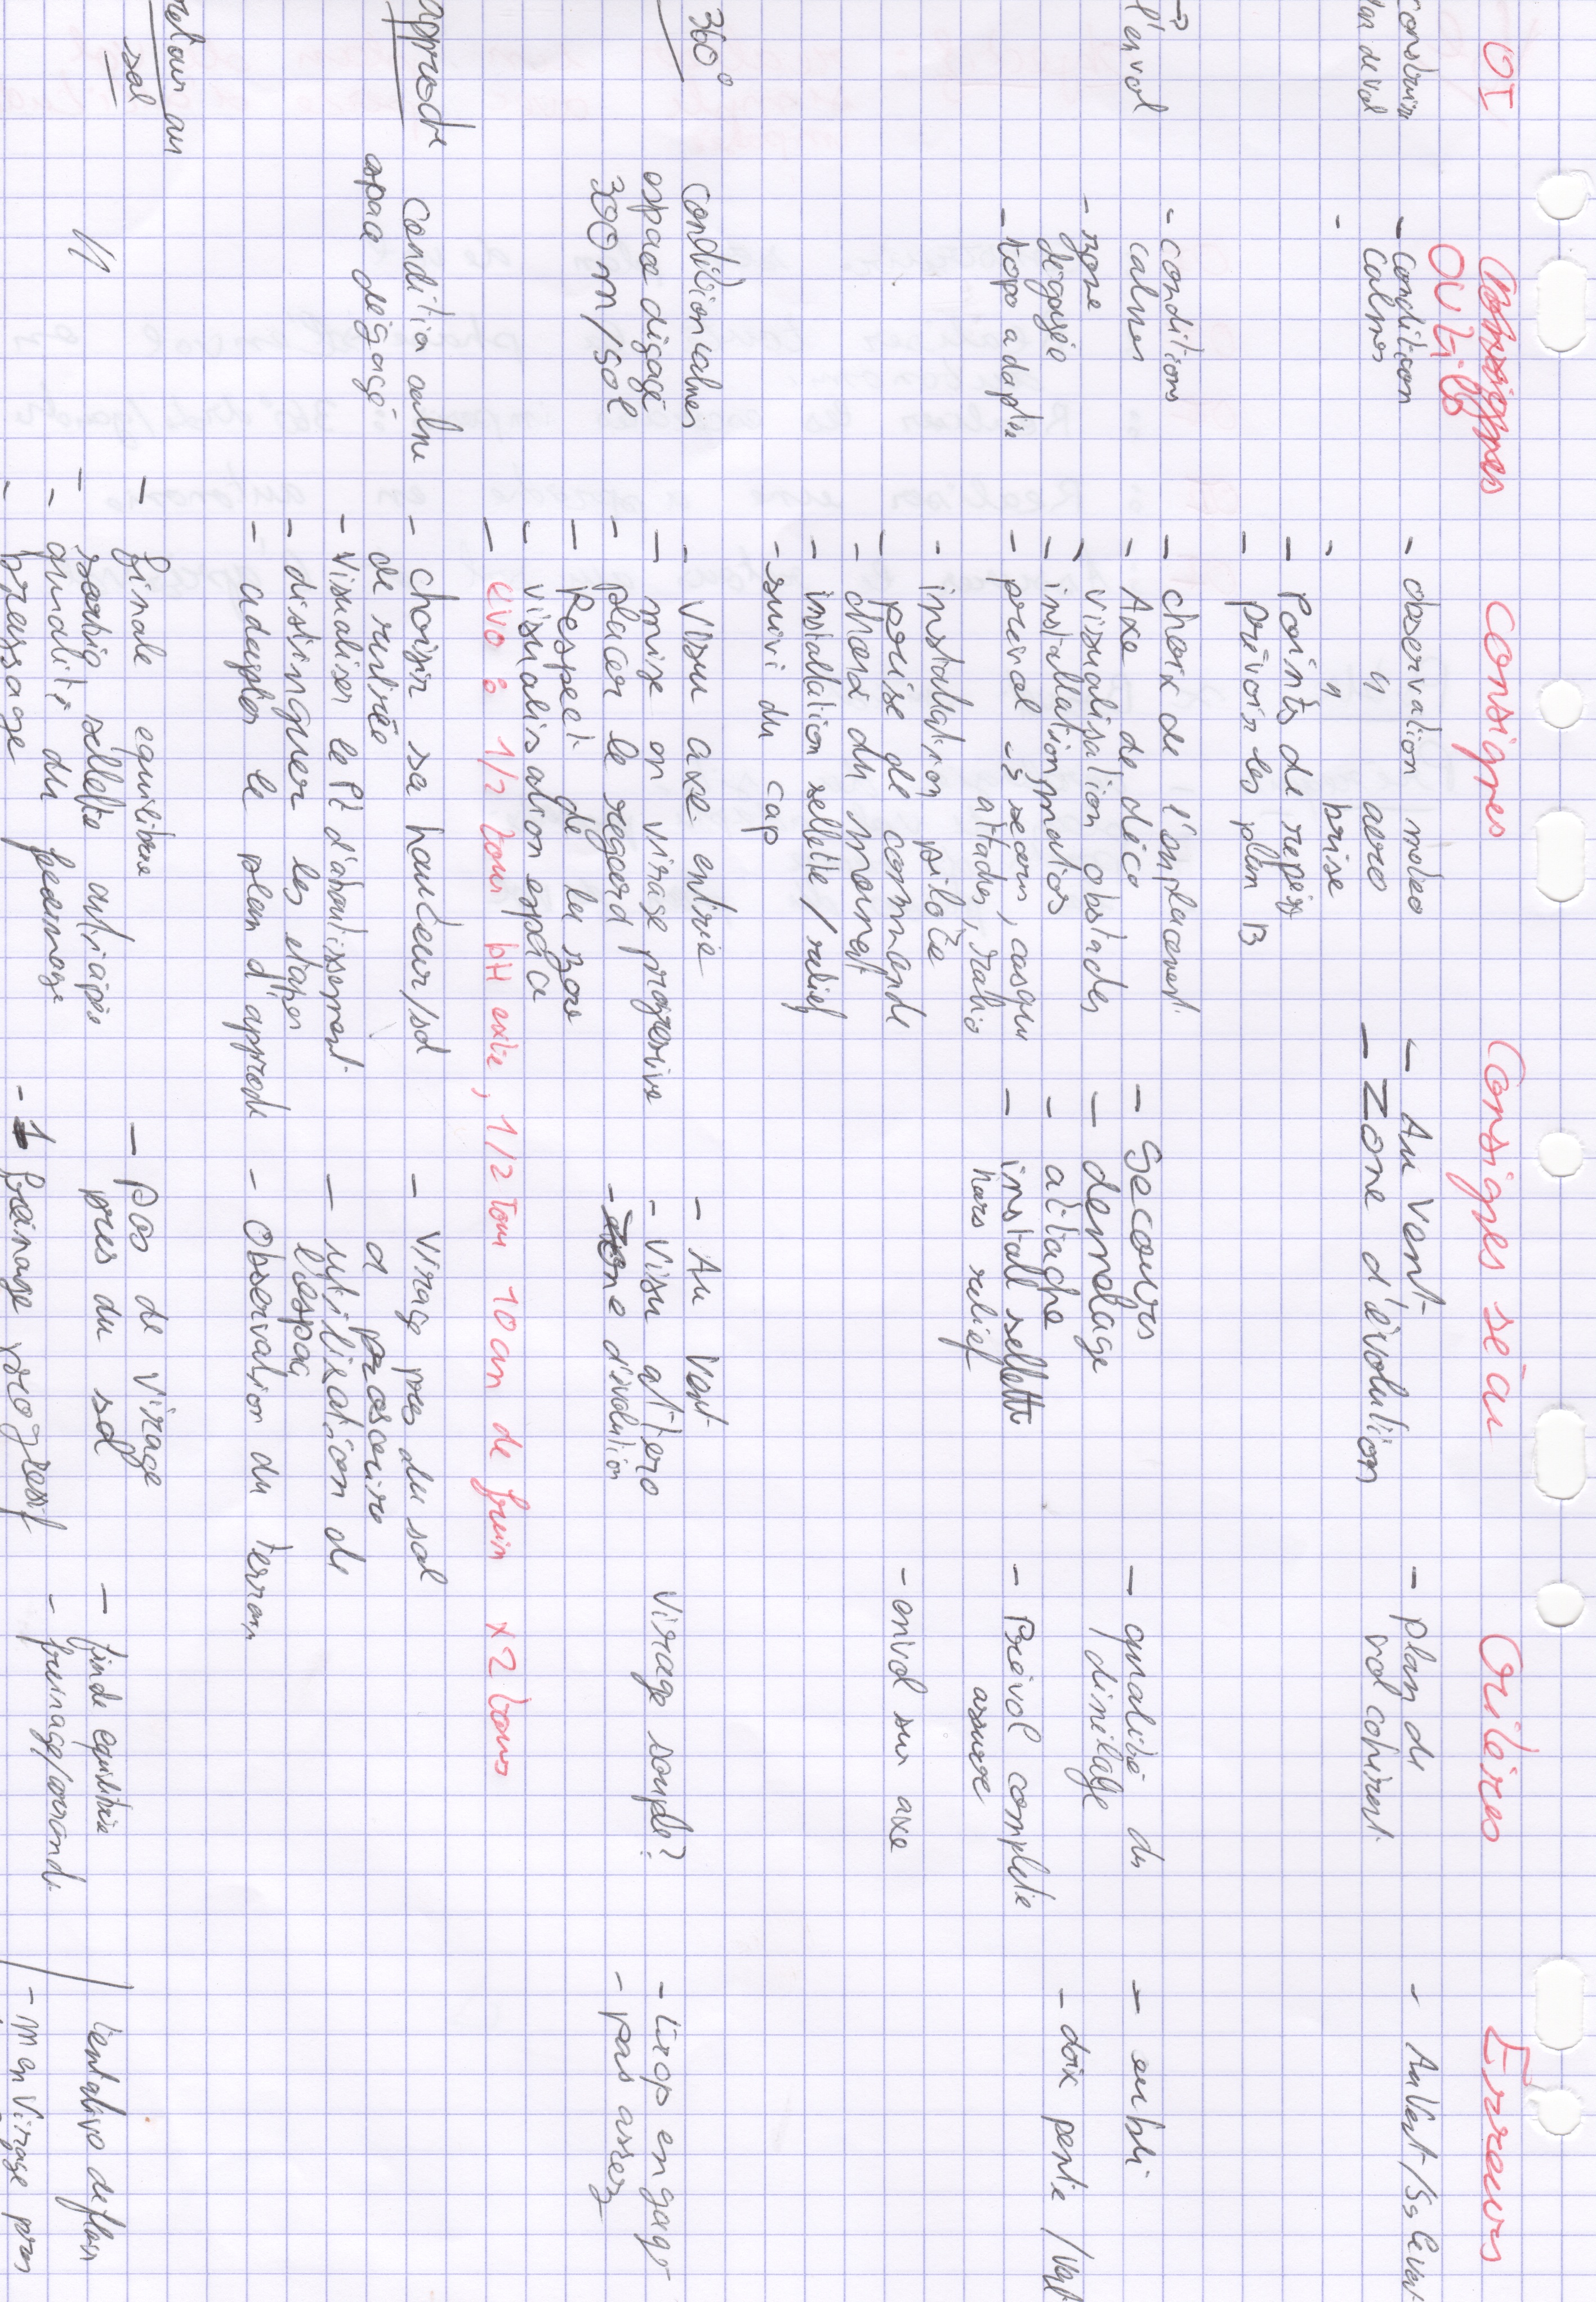 OI
Outils
Consignes
Consignes sécu
Critères
Erreurs
construire
plan de vol
- condition
calmes
-
- observation meteo
" aero
- " brise
- Points de repères
- prévoir les plan B
- Au Vent
- Zone d'évolution
- plan de
vol cohérent
- AuVent / Ss le vent
→
l'envol
- conditions
calmes
- zone
dégagée
- topo adaptée
- choix de l'emplacement
- Axe de déco
- visualisation obstacles
- installation
- prévol → secours, casque
attaches, radio
- installation pilote
- prise de commande
- choix du moment
- installation sellette / relief
- suivi du cap
- Secours
- demelage
- attache
- install sellette
hors relief
- qualité du
démêlage
- Prévol complete
- envol sur axe
- oubli
- choix pente / Vent
360°
condition calmes
espace dégagé
300m/sol
- visu axe entrée
- mise en virage progressive
- placer le regard
- Respect de la zone
- visualisation espace
- evo : 1/2 tour pH exte, 1/2 Tour 10 cm de frein x2 tours
- Au Vent
- Visu alti zero
- Zone d'évolution
virage souple?
- trop engagé
- pas assez
approche
condition calme
espace dégagé
- choisir sa hauteur/sol
de rentrée
- Visualiser le Pt d'aboutissement
- distinguer les etapes
- adapter le plan d'approche
- Virage pres du sol
a proscrire
- utilisation de
l'espace
- Observation du terrain
retour au
sol
//
- finale equilibrée
- sortie sellette anticipée
- qualité du freinage
- brassage
- pas de virage
pres du sol
- freinage progressif
- finale equilibrée
- freinage/arrondi
tentative de flair
- m en virage pres